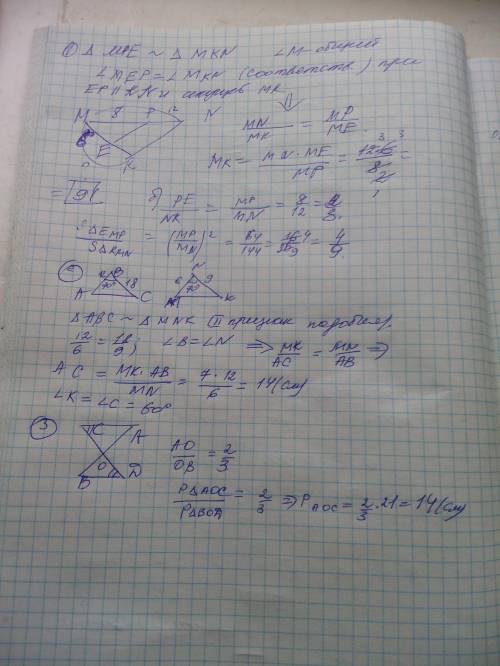 ① Δ MPE ~ Δ MKN ∠M-общий
∠MEP = ∠MKN (соответств) при
EP || KN и секущей MK
M 8 P 12 N
E
K
MN/MK = MP/ME
MK = MN·ME/MP = 12·6/8 =
= 9
б) PE/NK = MP/MN = 8/12 = 2/3.
SΔEMP/SΔKMN = (MP/MN)² = 64/144 = 16/36 = 4/9.
② 12 B 70° 18 A C
N 6 9 70° M K
ΔABC ~ ΔMNK II признак подобия.
12/6 = 18/9; ∠B = ∠N ⇒ MK/AC = MN/AB ⇒
AC = MK·AB/MN = 7·12/6 = 14(см)
∠K = ∠C = 60°
③ C A
O
B D
AO/OB = 2/3
PΔAOC/PΔBOD = 2/3 ⇒ P AOC = 2/3·21 = 14(см)